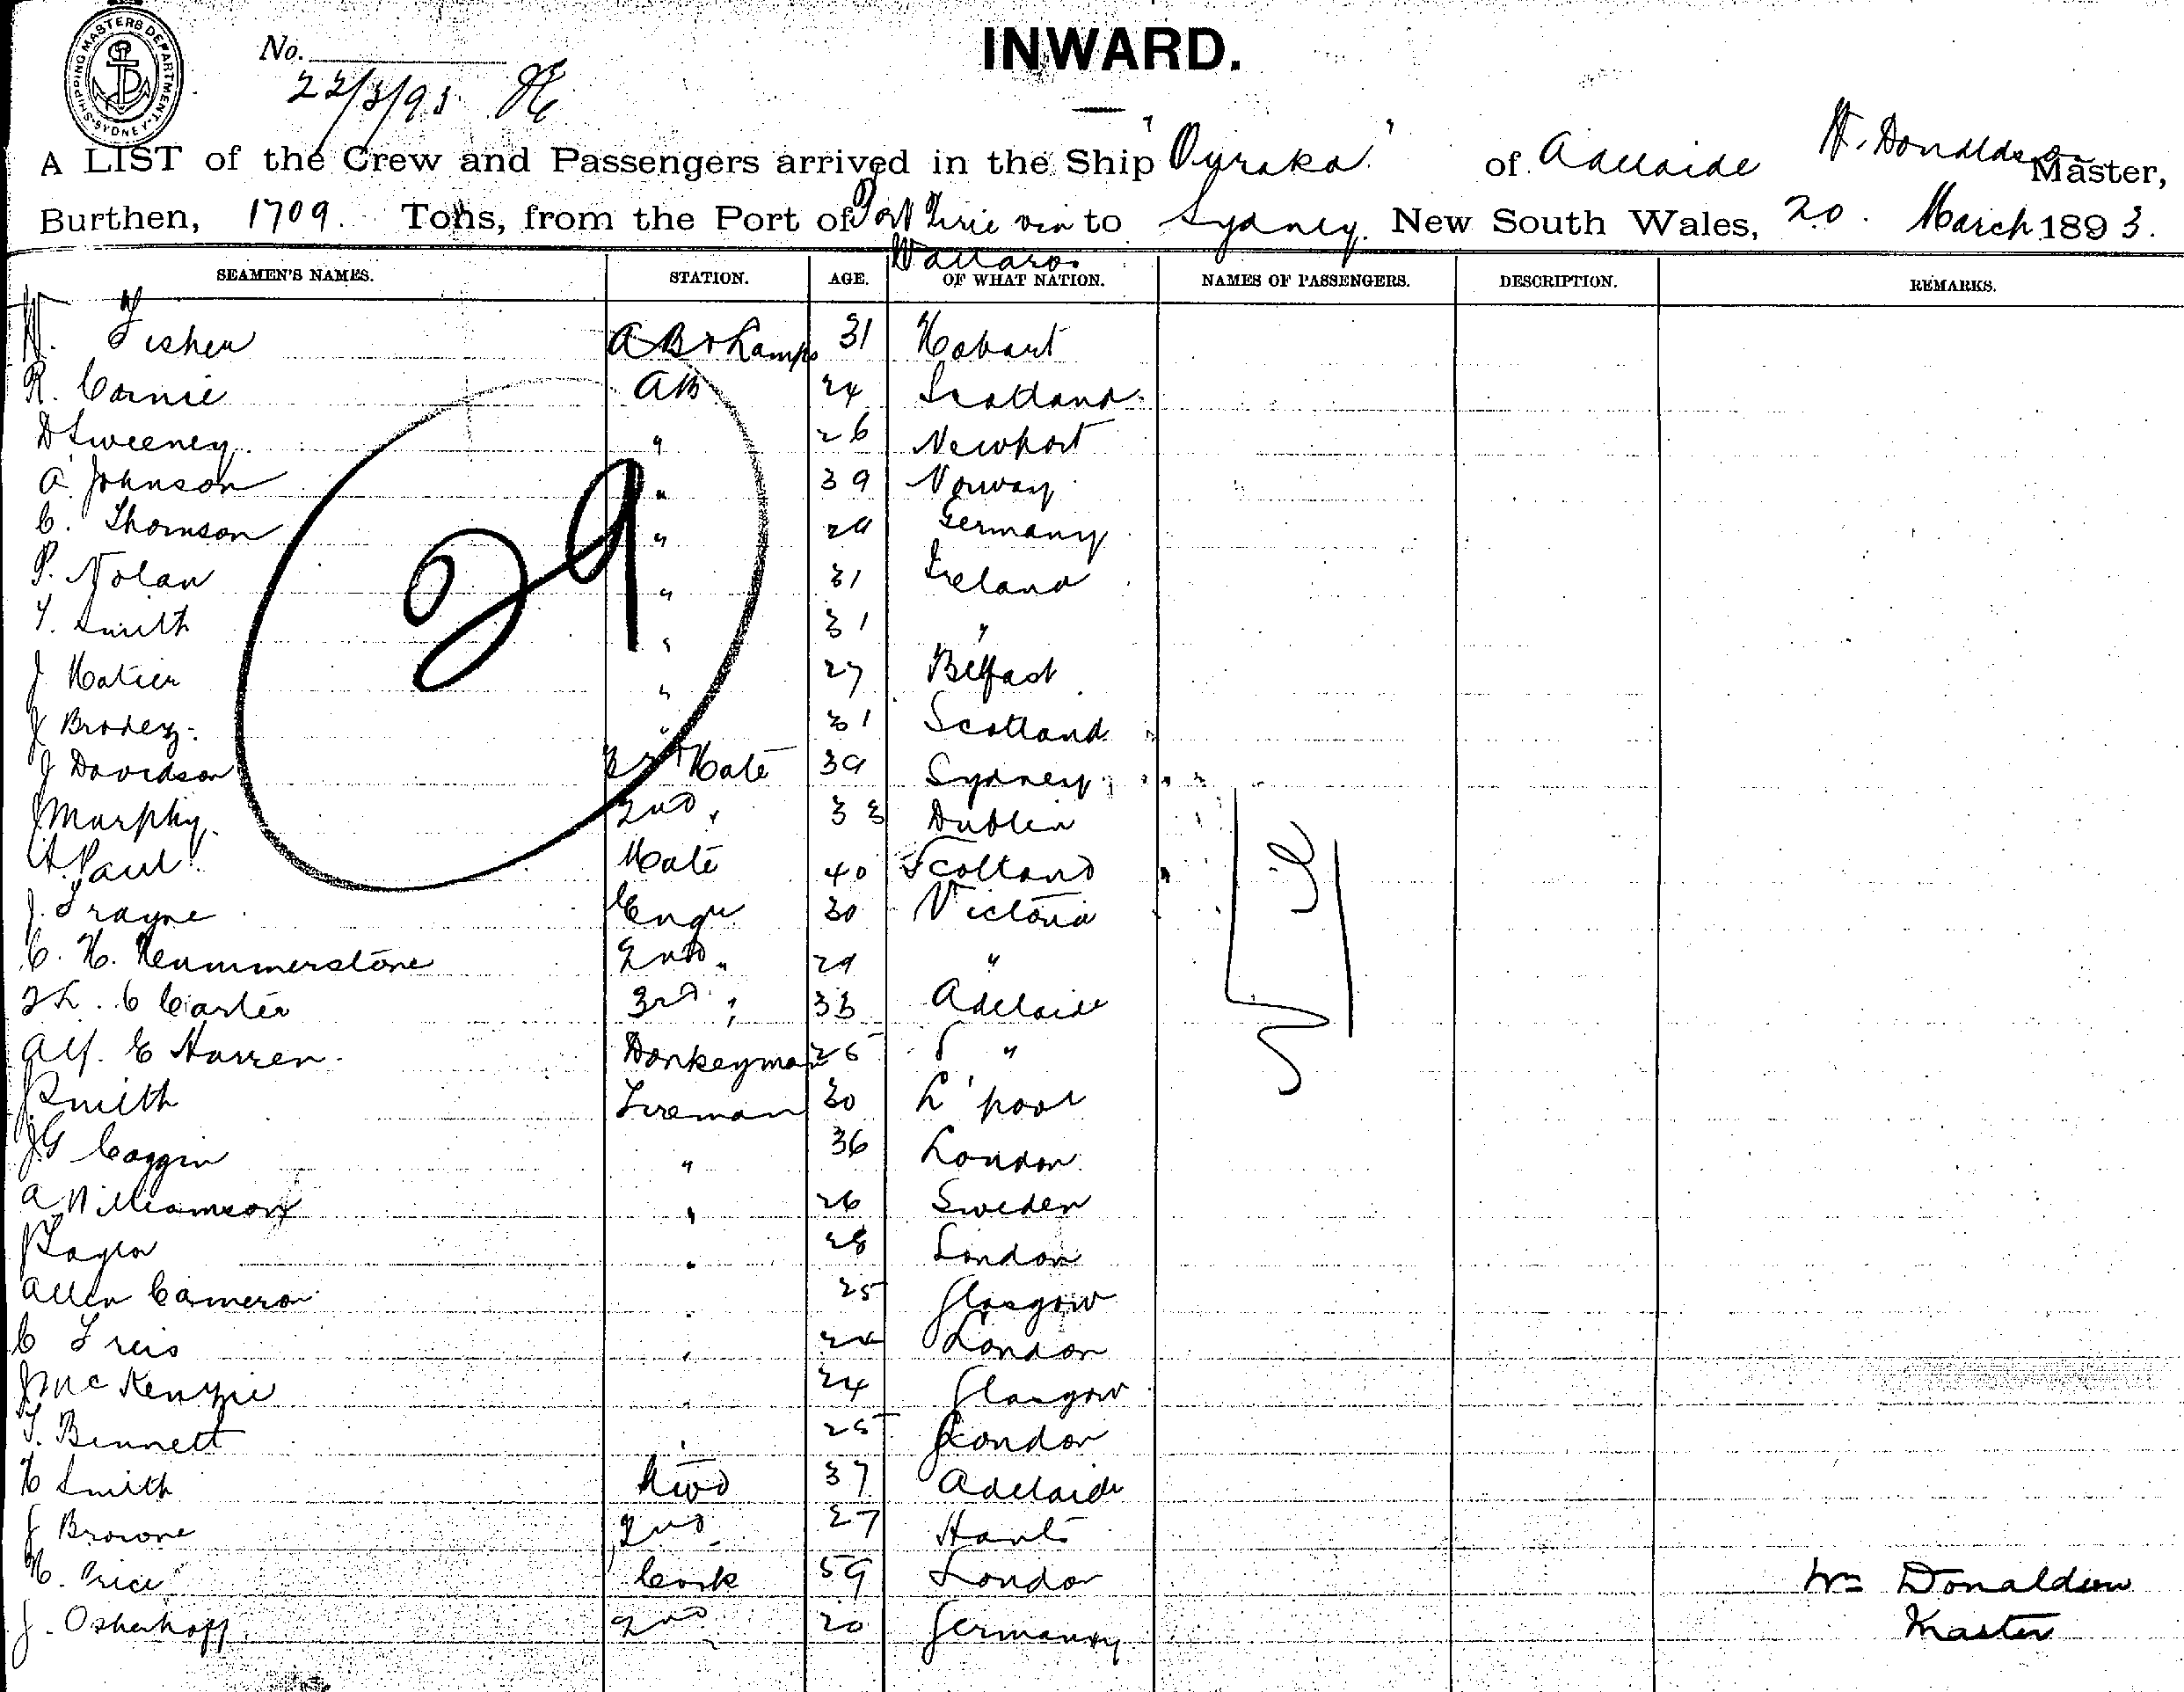 SHIPPING MASTERS DEPARTMENT. SYDNEY
No.
22/3/93
INWARD.
A LIST of the Crew and Passengers arrived in the Ship "Ouraka" of Adelaide W. Donaldson Master,
Burthen, 1709. Tons, from the Port of Port Pirie via to Sydney. New South Wales, 20. March 1893.
Wallaroo
SEAMEN'S NAMES. STATION. AGE. OF WHAT NATION. NAMES OF PASSENGERS. DESCRIPTION. REMARKS.
W. Fisher AB & Lamps 31 Hobart
R. Cornie AB 24 Scotland
D Sweeney " 26 Newport
A. Johnson " 39 Norway
C. Thomson " Germany
P. Nolan " 31 Ireland
T. Smith " 31 "
J 27 Belfast
J Brodey " 31 Scotland
J Davidson Mate 39 Sydney
J Murphy 2nd " 33 Dublin
Paul Mate 40 Scotland
J. Trayne Engr 30 Victoria
C. H. 2nd " 29 "
C Carter 3rd " 33 Adelaide
Alf. E Harren Donkeyman 25 "
J Smith Fireman 30 L'pool
JG Coggin " 36 London
A Williamson " 26 Sweden
" 28 London
Allen Cameron " 25 Glasgow
C Freis " London
J McKenzie " 24 Glasgow
T. Bennett " 25 London
H Smith Stwd 37 Adelaide
J Browne 2nd " 27 Hants
H. Price Cook 59 London
J. Osterhoff 2nd " 20 Germany
29
Nil
Wm Donaldson
Master